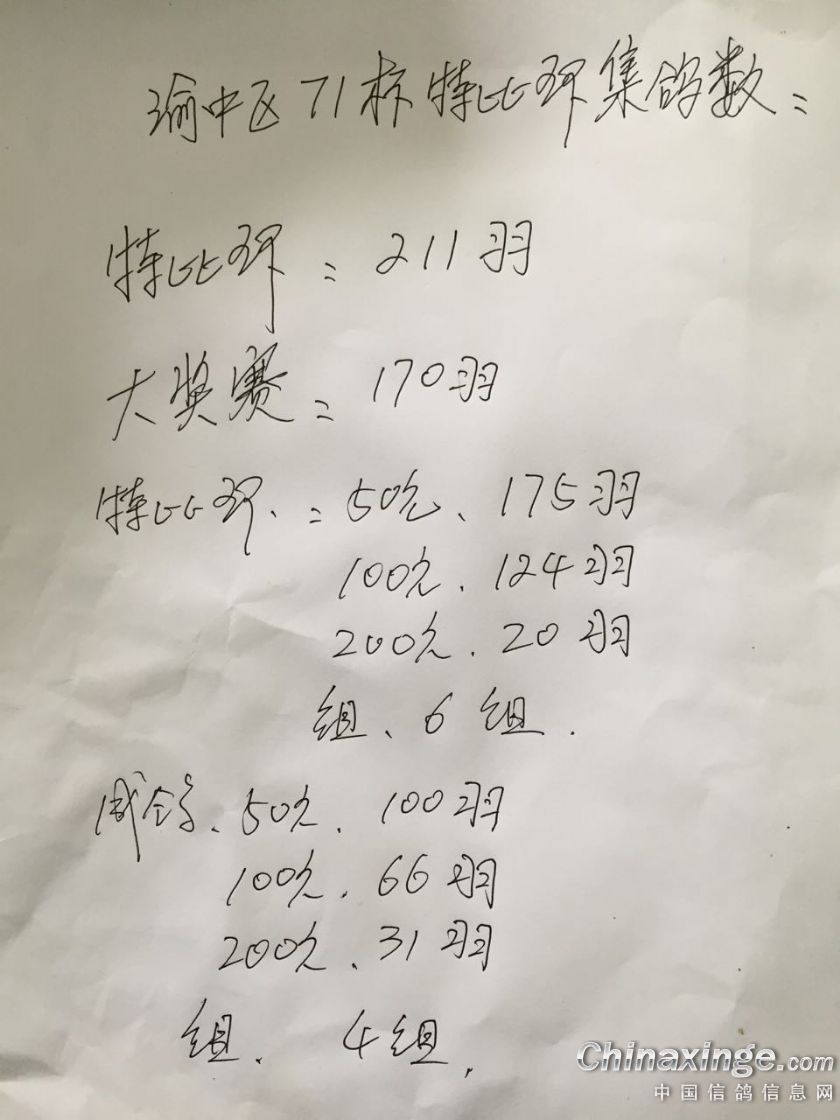 渝中区71标特比环集鸽数：
特比环：211羽
大奖赛：170羽
特比环：50元、175羽
100元、124羽
200元、20羽
组、6组.
成鸽、50元、100羽
100元、66羽
200元、31羽
组、4组.
Chinaxinge.com
中国信鸽信息网